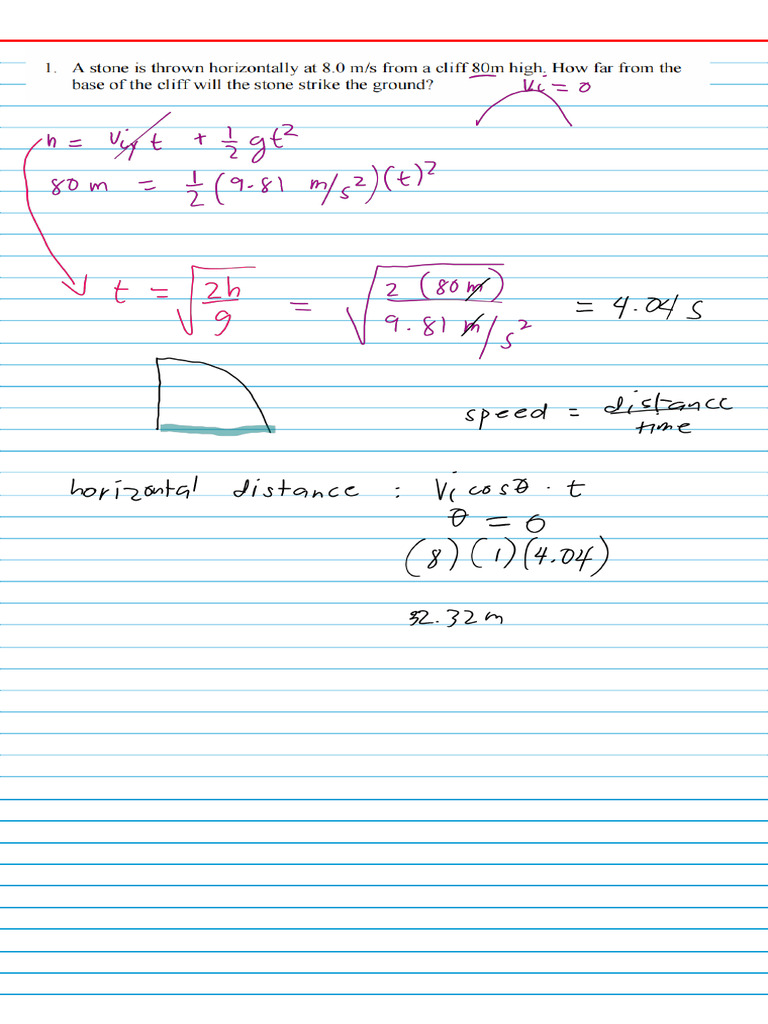 1. A stone is thrown horizontally at 8.0 m/s from a cliff 80m high. How far from the
base of the cliff will the stone strike the ground?
Vi = 0
h = Viy t + 1/2 gt²
80 m = 1/2 (9.81 m/s²)(t)²
t = √(2h/g) = √(2 (80m)/9.81 m/s²) = 4.04 s
speed = distance/time
horizontal distance : Vi cosθ · t
θ = 0
(8)(1)(4.04)
32.32 m